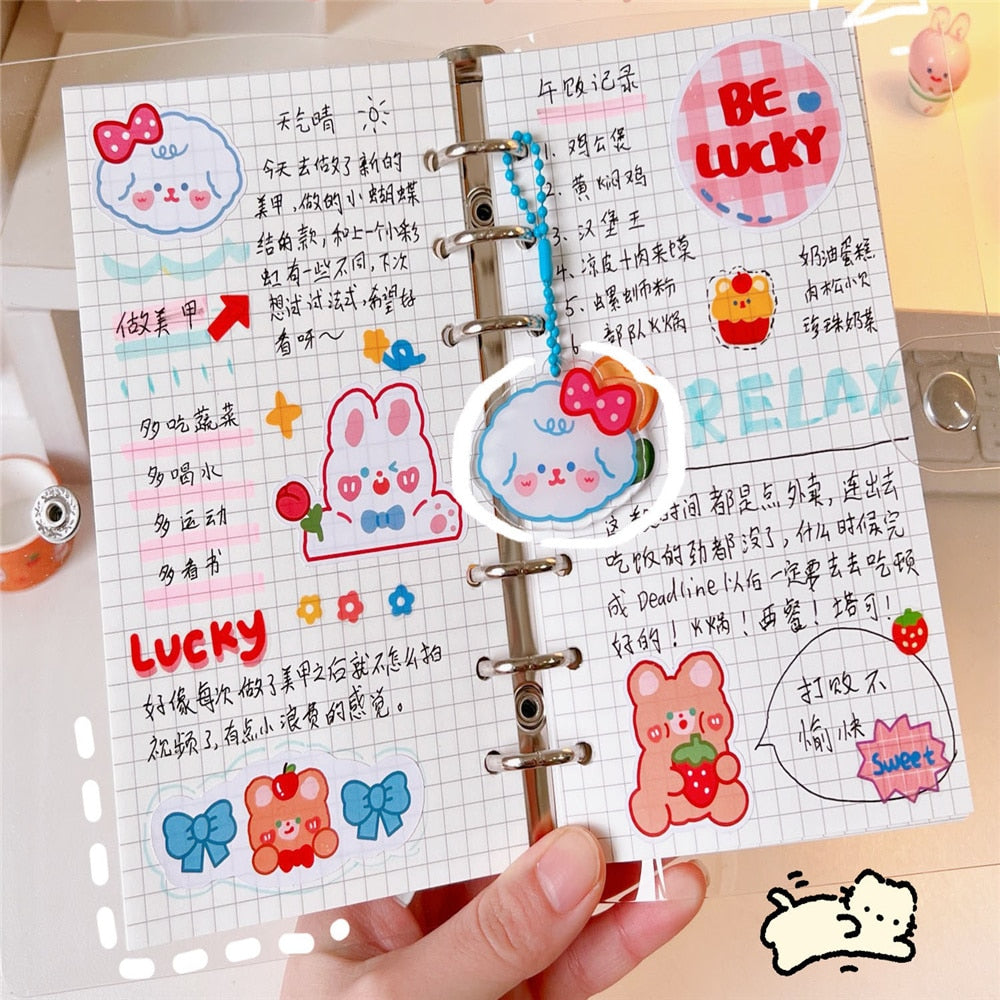 天气晴
今天去做了新的
美甲，做的小蝴蝶
结的款，和上一个小彩
虹有一些不同，下次
想试试法式，希望好
看呀～
做美甲
多吃蔬菜
多喝水
多运动
多看书
Lucky
好像每次做了美甲之后就不怎么拍
视频了，有点小浪费的感觉。
午饭记录
1. 鸡公煲
2. 黄焖鸡
3. 汉堡王
4. 凉皮+肉夹馍
5. 螺蛳粉
6 部队火锅
BE
LUCKY
奶油蛋糕
肉松小贝
珍珠奶茶
RELAX
这段时间都是点外卖，连出去
吃饭的劲都没了，什么时候完
成 Deadline 以后一定要去去吃顿
好的！火锅！西餐！塔可！
打败不
愉快
Sweet